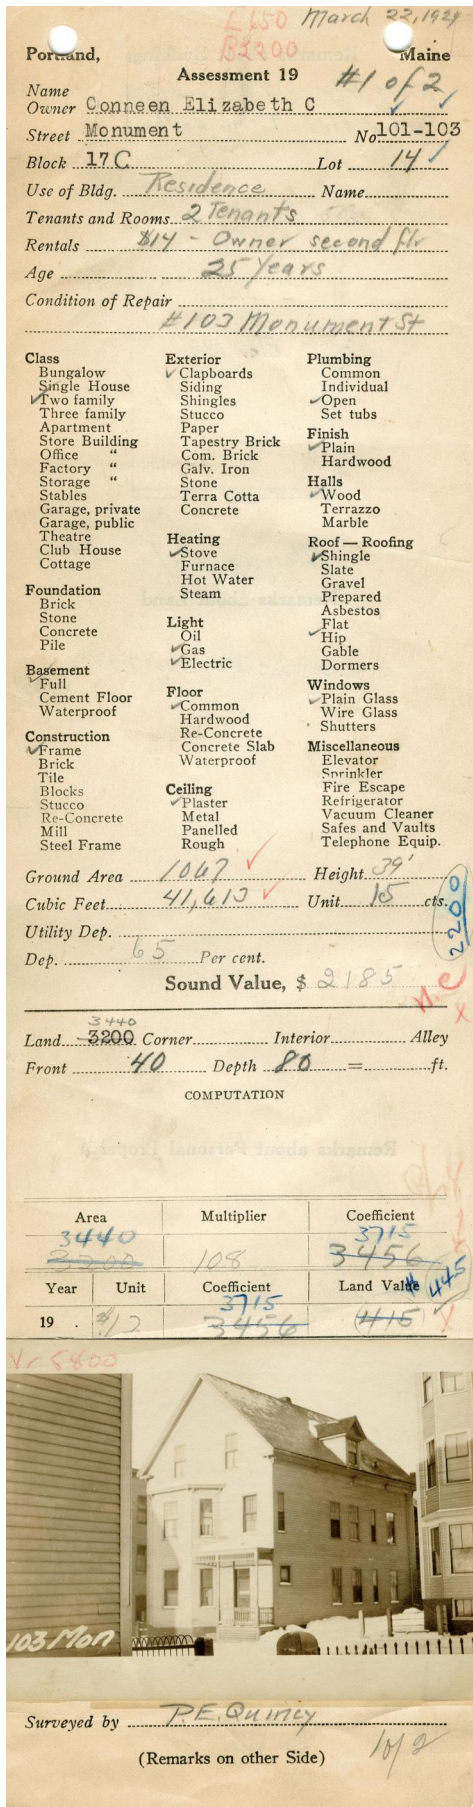 L 650 March 22, 1924
B2200
Portland, Maine
Assessment 19
#1 of 2
Name
Owner Conneen Elizabeth C
Street Monument No 101-103
Block 17C Lot 14
Use of Bldg. Residence Name
Tenants and Rooms 2 Tenants
Rentals $14 - Owner second flr
Age 25 Years
Condition of Repair
#103 Monument St
Class
Bungalow
Single House
Two family
Three family
Apartment
Store Building
Office "
Factory "
Storage "
Stables
Garage, private
Garage, public
Theatre
Club House
Cottage
Foundation
Brick
Stone
Concrete
Pile
Basement
Full
Cement Floor
Waterproof
Construction
Frame
Brick
Tile
Blocks
Stucco
Re-Concrete
Mill
Steel Frame
Exterior
Clapboards
Siding
Shingles
Stucco
Paper
Tapestry Brick
Com. Brick
Galv. Iron
Stone
Terra Cotta
Concrete
Heating
Stove
Furnace
Hot Water
Steam
Light
Oil
Gas
Electric
Floor
Common
Hardwood
Re-Concrete
Concrete Slab
Waterproof
Ceiling
Plaster
Metal
Panelled
Rough
Plumbing
Common
Individual
Open
Set tubs
Finish
Plain
Hardwood
Halls
Wood
Terrazzo
Marble
Roof — Roofing
Shingle
Slate
Gravel
Prepared
Asbestos
Flat
Hip
Gable
Dormers
Windows
Plain Glass
Wire Glass
Shutters
Miscellaneous
Elevator
Sprinkler
Fire Escape
Refrigerator
Vacuum Cleaner
Safes and Vaults
Telephone Equip.
Ground Area 1067 Height 39'
Cubic Feet 41,613 Unit 15 cts.
2200
Utility Dep.
Dep. 65 Per cent.
Sound Value, $ 2185
3440
Land 3200 Corner Interior Alley
Front 40 Depth 80 = ft.
COMPUTATION
Area Multiplier Coefficient
3440 3715
3200 108 3456
Year Unit Coefficient Land Value $445
3715
19 . $12 3456 415
103 Mon
Surveyed by P.E. Quincy
(Remarks on other Side) 1 of 2